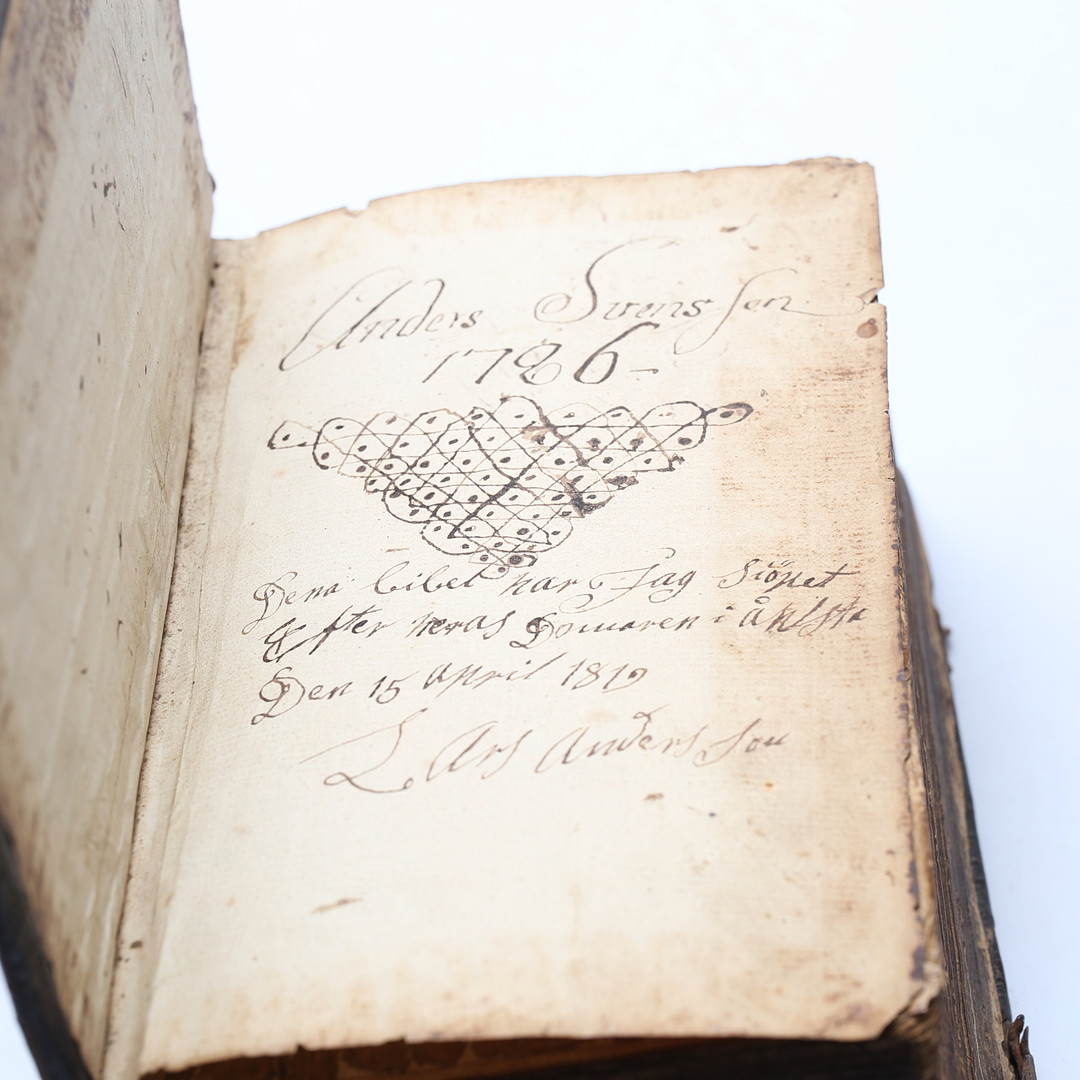 Anders Svens son
1786
Dena bibel har Jag Kiöpet
Efter Domaren i
Den 15 April 1819
Lars Andersson